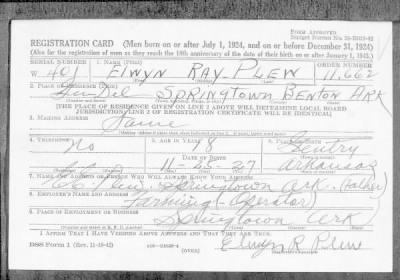 FORM APPROVED
REGISTRATION CARD (Men born on or after July 1, 1924, and on or before December 31, 1924)
(Also for the registration of men as they reach the 18th anniversary of the date of their birth on or after January 1, 1943.)
SERIAL NUMBER 1. NAME (Print) ORDER NUMBER
W 401 Elwyn Ray Plew 11,662
2. PLACE OF RESIDENCE (Print)
Springtown Benton Ark
[THE PLACE OF RESIDENCE GIVEN ON LINE 2 ABOVE WILL DETERMINE LOCAL BOARD
JURISDICTION; LINE 2 OF REGISTRATION CERTIFICATE WILL BE IDENTICAL]
3. MAILING ADDRESS
Same
4. TELEPHONE 5. AGE IN YEARS
No 18 Gentry
DATE OF BIRTH
Arkansas
7. NAME AND ADDRESS OF PERSON WHO WILL ALWAYS KNOW YOUR ADDRESS
Plew, Springtown Ark. (Father)
8. EMPLOYER'S NAME AND ADDRESS
Farming (Operator)
9. PLACE OF EMPLOYMENT OR BUSINESS
Springtown Ark
I AFFIRM THAT I HAVE VERIFIED ABOVE ANSWERS AND THAT THEY ARE TRUE.
DSS Form 1 (OVER) Elwyn R Plew